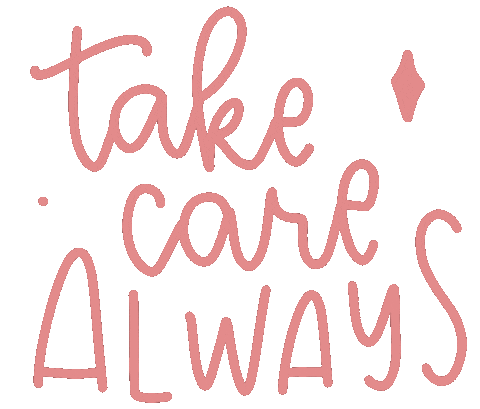 take
care
ALWAYS